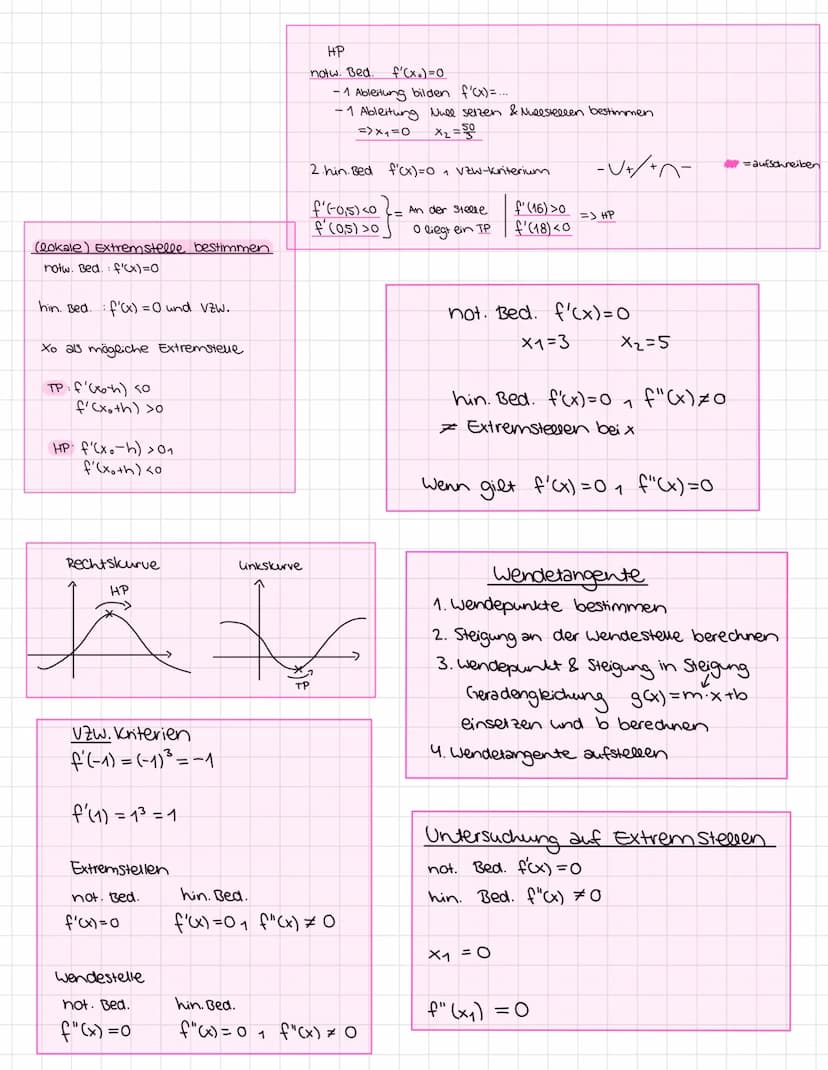 HP
notw. Bed. f'(x₀)=0
- 1 Ableitung bilden f'(x)=...
- 1 Ableitung Null setzen & Nullstellen bestimmen
=> x₁=0 x₂=50/3
2. hin. Bed f'(x)=0 ∧ VZW-Kriterium -∪+/+∩- =aufschreiben
f'(-0,5)<0 } = An der Stelle | f'(16)>0 => HP
f'(0,5)>0 0 liegt ein TP | f'(18)<0
(lokale) Extremstelle bestimmen
notw. Bed. : f'(x)=0
hin. Bed. : f'(x) = 0 und VZW.
X₀ als mögliche Extremstelle
TP: f'(x₀-h) <0
f'(x₀+h) >0
HP: f'(x₀-h) >0 ∧
f'(x₀+h) <0
not. Bed. f'(x)=0
x₁=3 x₂=5
hin. Bed. f'(x)=0 ∧ f''(x)≠0
≠ Extremstellen bei x
Wenn gilt f'(x)=0 ∧ f''(x)=0
Rechtskurve
HP
Linkskurve
TP
Wendetangente
1. Wendepunkte bestimmen
2. Steigung an der Wendestelle berechnen
3. Wendepunkt & Steigung in Steigung
Geradengleichung g(x)=m·x+b
einsetzen und b berechnen
4. Wendetangente aufstellen
VZW. Kriterien
f'(-1) = (-1)³ = -1
f'(1) = 1³ = 1
Extremstellen
not. Bed. hin. Bed.
f'(x)=0 f'(x)=0 ∧ f''(x) ≠ 0
Wendestelle
not. Bed. hin. Bed.
f''(x)=0 f''(x)=0 ∧ f''(x) ≠ 0
Untersuchung auf Extremstellen
not. Bed. f'(x)=0
hin. Bed. f''(x) ≠0
x₁ = 0
f''(x₁) = 0